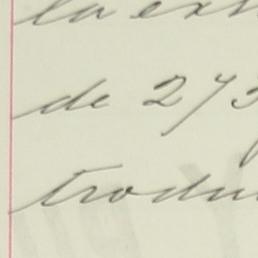 la ext
de 273
tradu